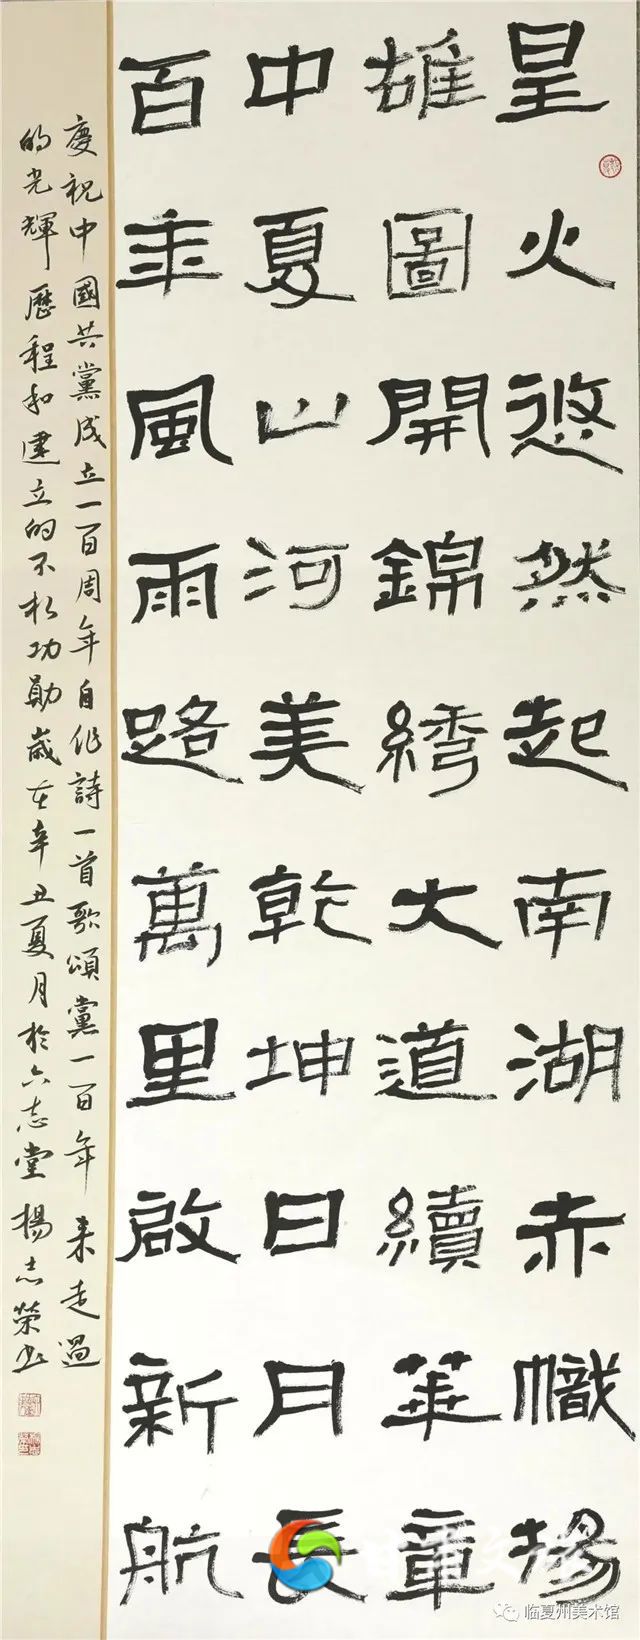 星火悠然起南湖赤幟揚
雄圖開錦綉大道續華章
中夏山河美乾坤日月長
百年風雨路萬里啟新航
慶祝中國共黨成立一百周年自作詩一首歌頌黨一百年来走過
的光輝歷程和建立的不朽功勛歲在辛丑夏月於六志堂楊志榮書
临夏州美术馆